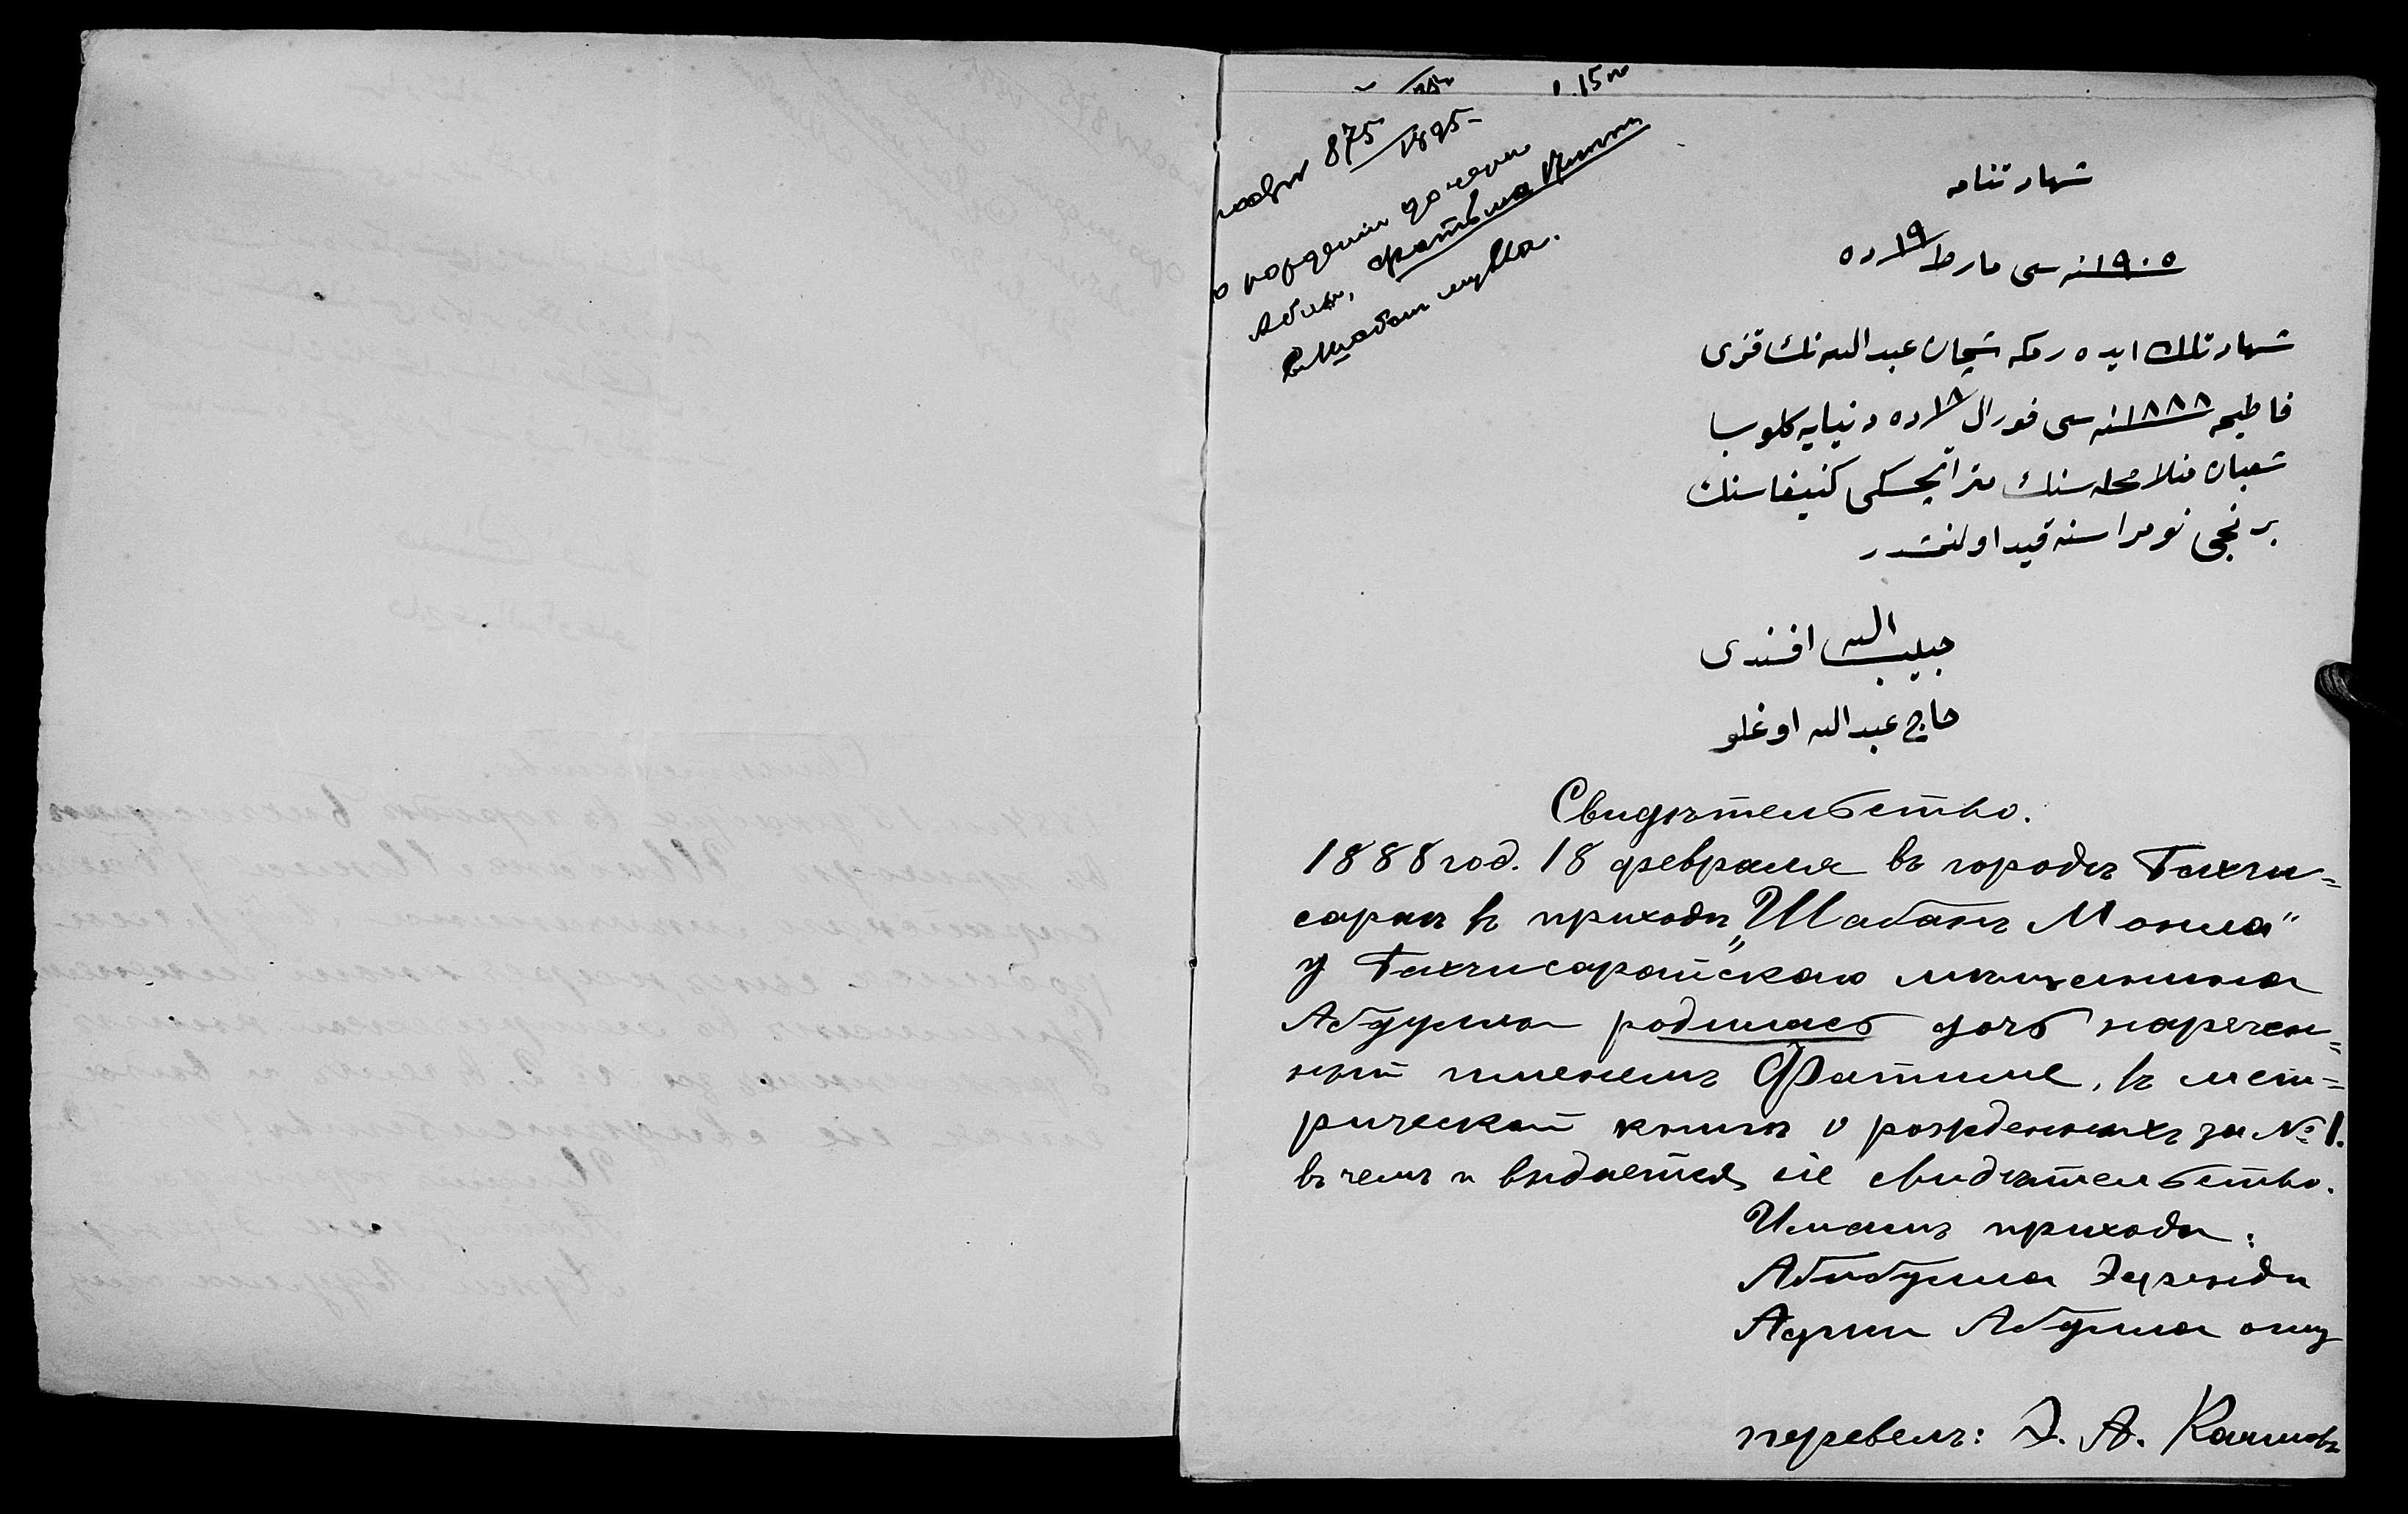 875
1895
о рожденіи дочери
Фатьма
شهادتنامه
١٩٠٥ نه سی مارط ١٩ ده
شهادتلك ايده رمكه شيحان عبد الله نك قزى
فاطمه ١٨٨٨ نه سى فورال ١٨ ده دنيايه كلوب
شعبان منلا محله سنك متراتچسكى كنيغاسنك
برنجى نومراسنه قيد اولنمشدر
حبيب الله افندى
حاجى عبد الله اوغلو
Свидѣтельство.
1888 год. 18 февраля въ городѣ Бахчи=
сараѣ въ приходѣ „Шабанъ Монла"
у Бахчисарайскаго мѣщанина
Абдулла родилась дочь наречен=
ный именемъ Фатиме, въ мет=
рической книгѣ о рожденныхъ за № 1.
въ чемъ и выдается сіе свидѣтельство.
Имамъ прихода:
Абибулла Эфенди
Аджи Абдулла оглу
перевелъ: Э. А.